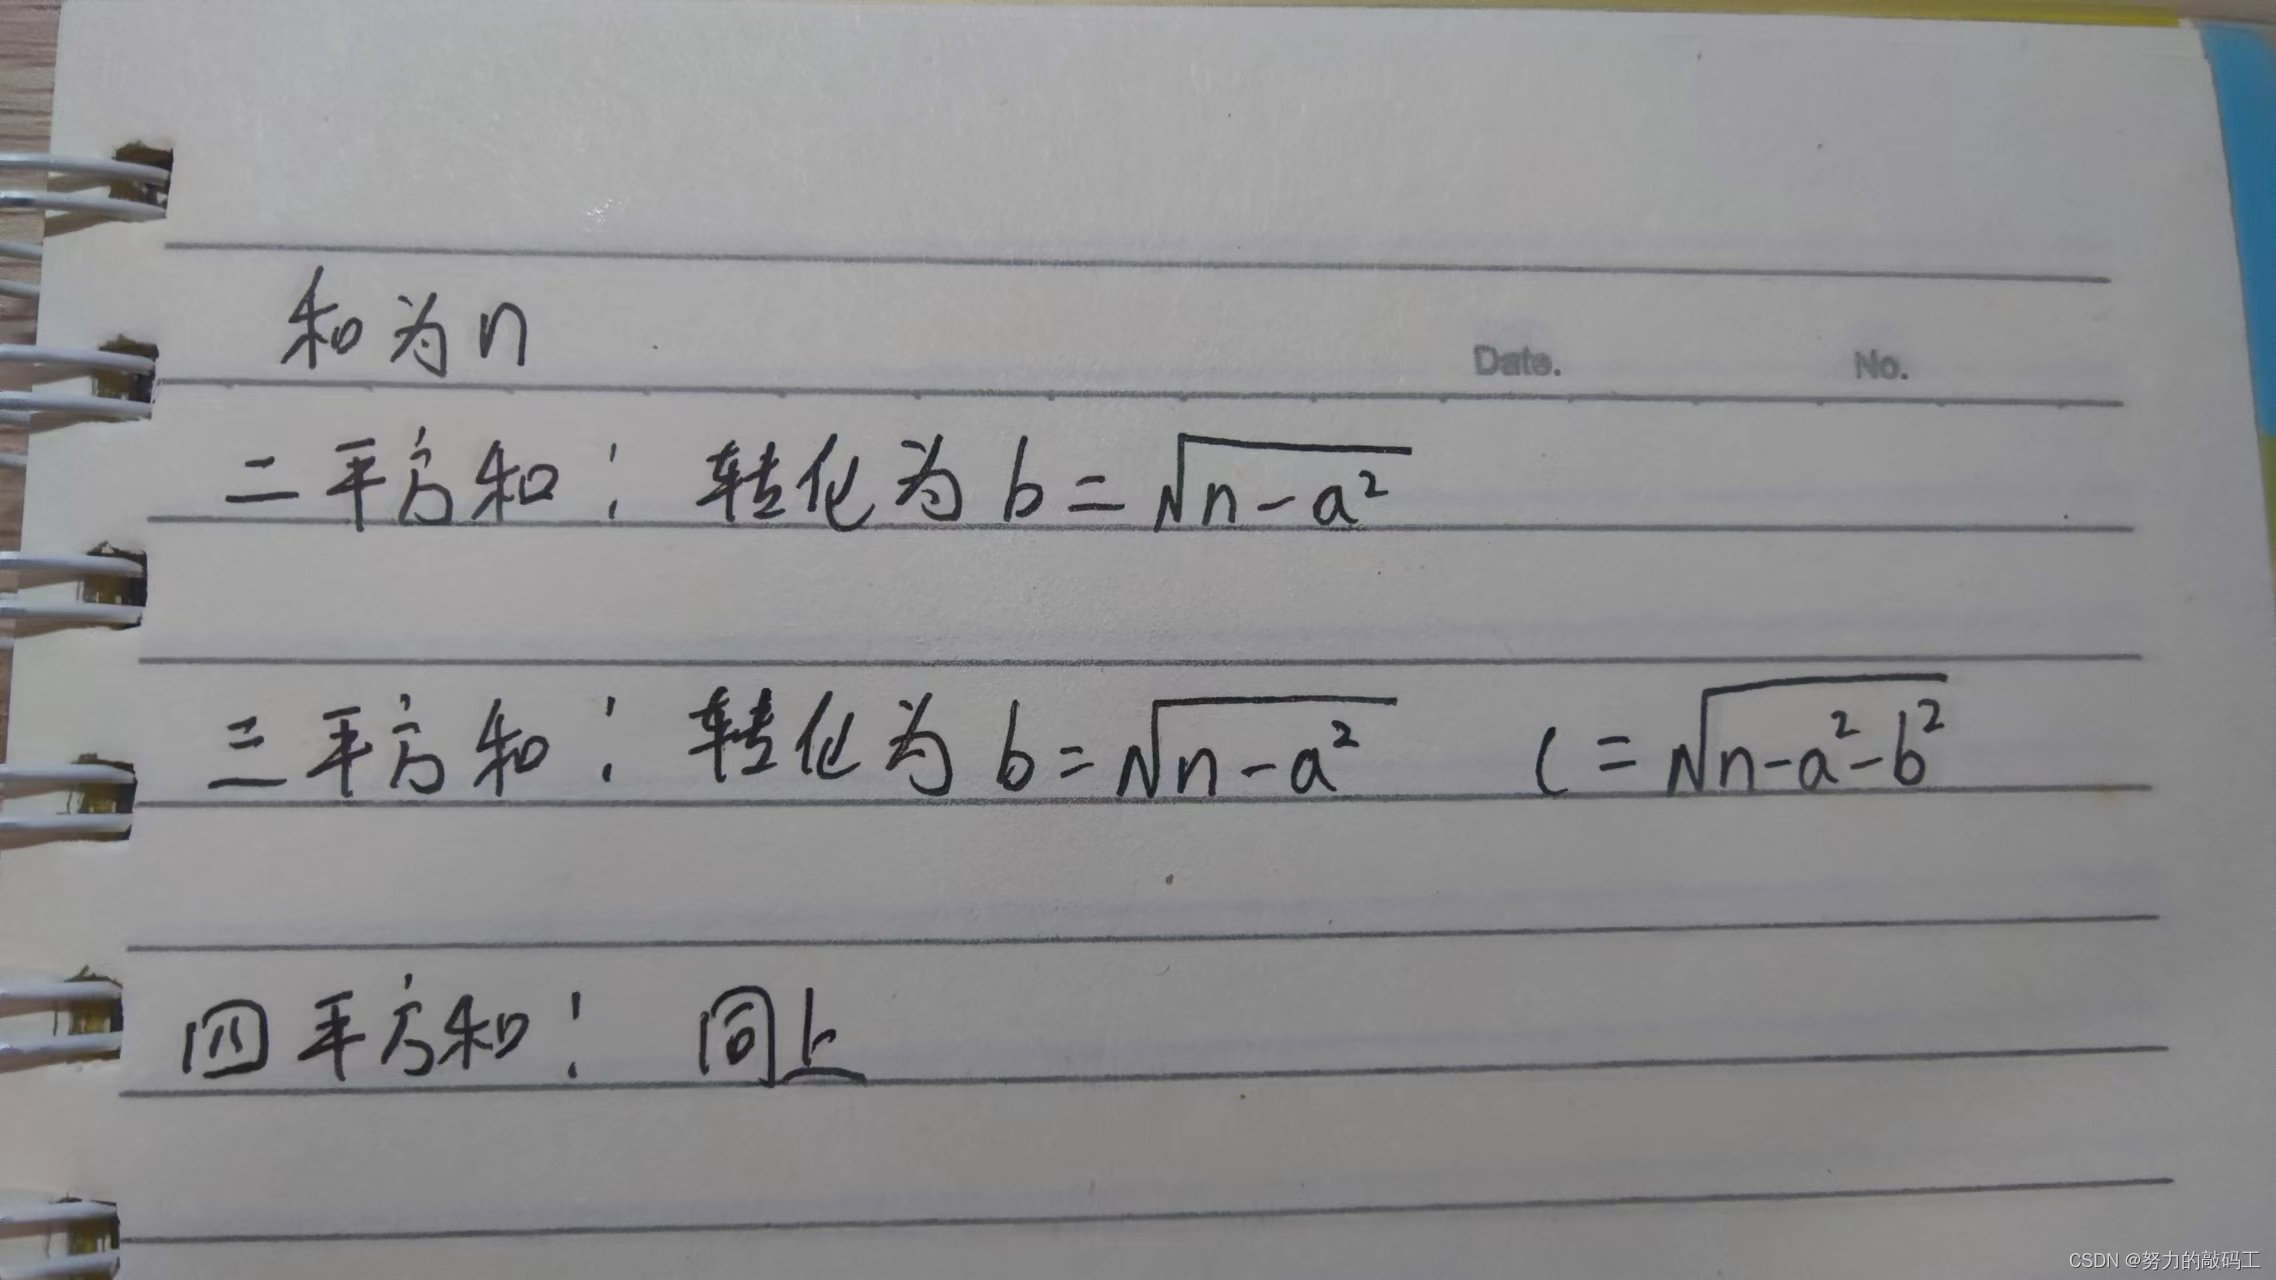 和为n
Date. No.
二平方和: 转化为 b=√n-a²
三平方和: 转化为 b=√n-a² c=√n-a²-b²
四平方和: 同上
CSDN @努力的敲码工